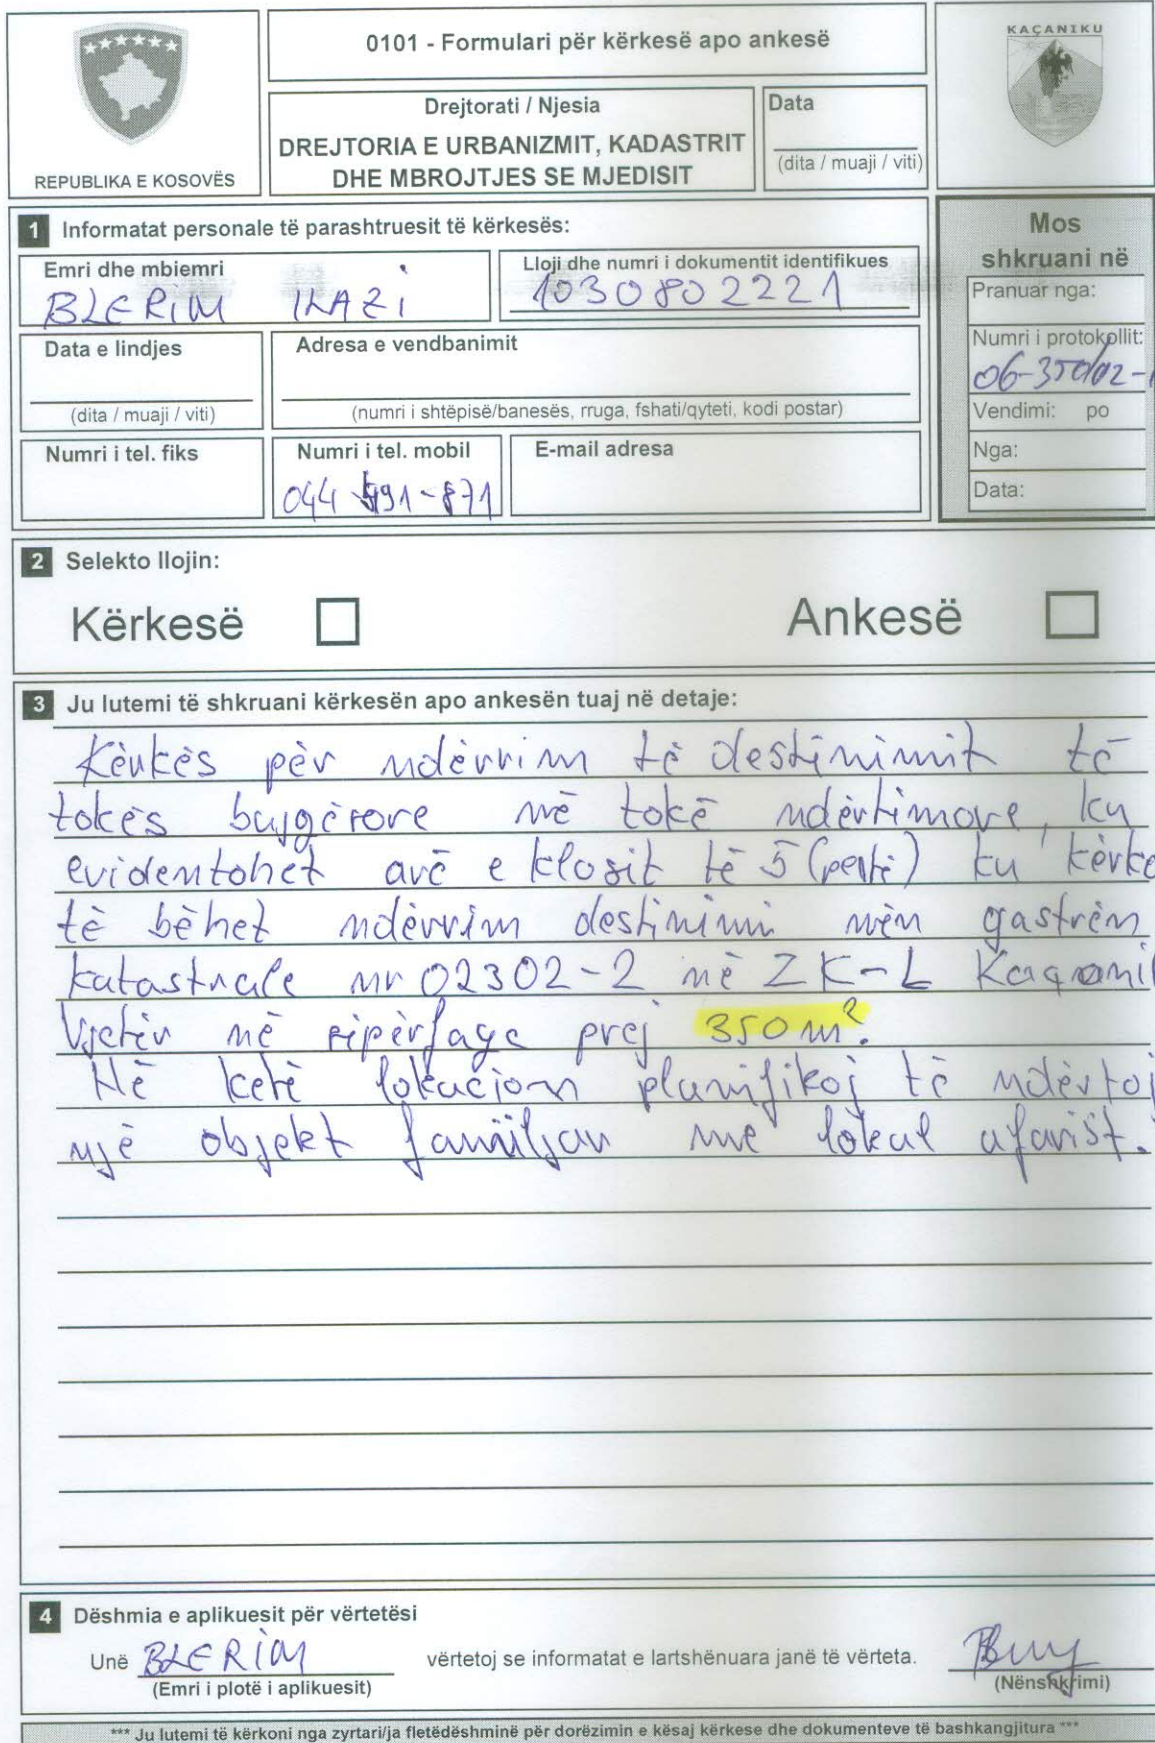 REPUBLIKA E KOSOVËS
0101 - Formulari për kërkesë apo ankesë
Drejtorati / Njesia
DREJTORIA E URBANIZMIT, KADASTRIT
DHE MBROJTJES SE MJEDISIT
Data
(dita / muaji / viti)
KAÇANIKU
1 Informatat personale të parashtruesit të kërkesës:
Emri dhe mbiemri
BLERIM
Lloji dhe numri i dokumentit identifikues
1030802221
Data e lindjes
(dita / muaji / viti)
Adresa e vendbanimit
(numri i shtëpisë/banesës, rruga, fshati/qyteti, kodi postar)
Numri i tel. fiks
Numri i tel. mobil
044 491-871
E-mail adresa
Mos
shkruani në
Pranuar nga:
Numri i protokollit:
06-350/02-
Vendimi: po
Nga:
Data:
2 Selekto llojin:
Kërkesë
Ankesë
3 Ju lutemi të shkruani kërkesën apo ankesën tuaj në detaje:
Kërkës për ndërrim të destinimit të
tokës bujqërore në tokë ndërtimore, ku
evidentohet arë e klasit të 5 (pestë) ku kërke
të bëhet ndërrim destinimi nën
katastrale nr 02302-2 në ZK-L
Vjetër në sipërfaqe prej 350 m².
Në ketë lokacion planifikoj të ndërtoj
një objekt familjar me lokal afarist.
4 Dëshmia e aplikuesit për vërtetësi
Unë BLERIM vërtetoj se informatat e lartshënuara janë të vërteta.
(Emri i plotë i aplikuesit)
(Nënshkrimi)
*** Ju lutemi të kërkoni nga zyrtari/ja fletëdëshminë për dorëzimin e kësaj kërkese dhe dokumenteve të bashkangjitura ***